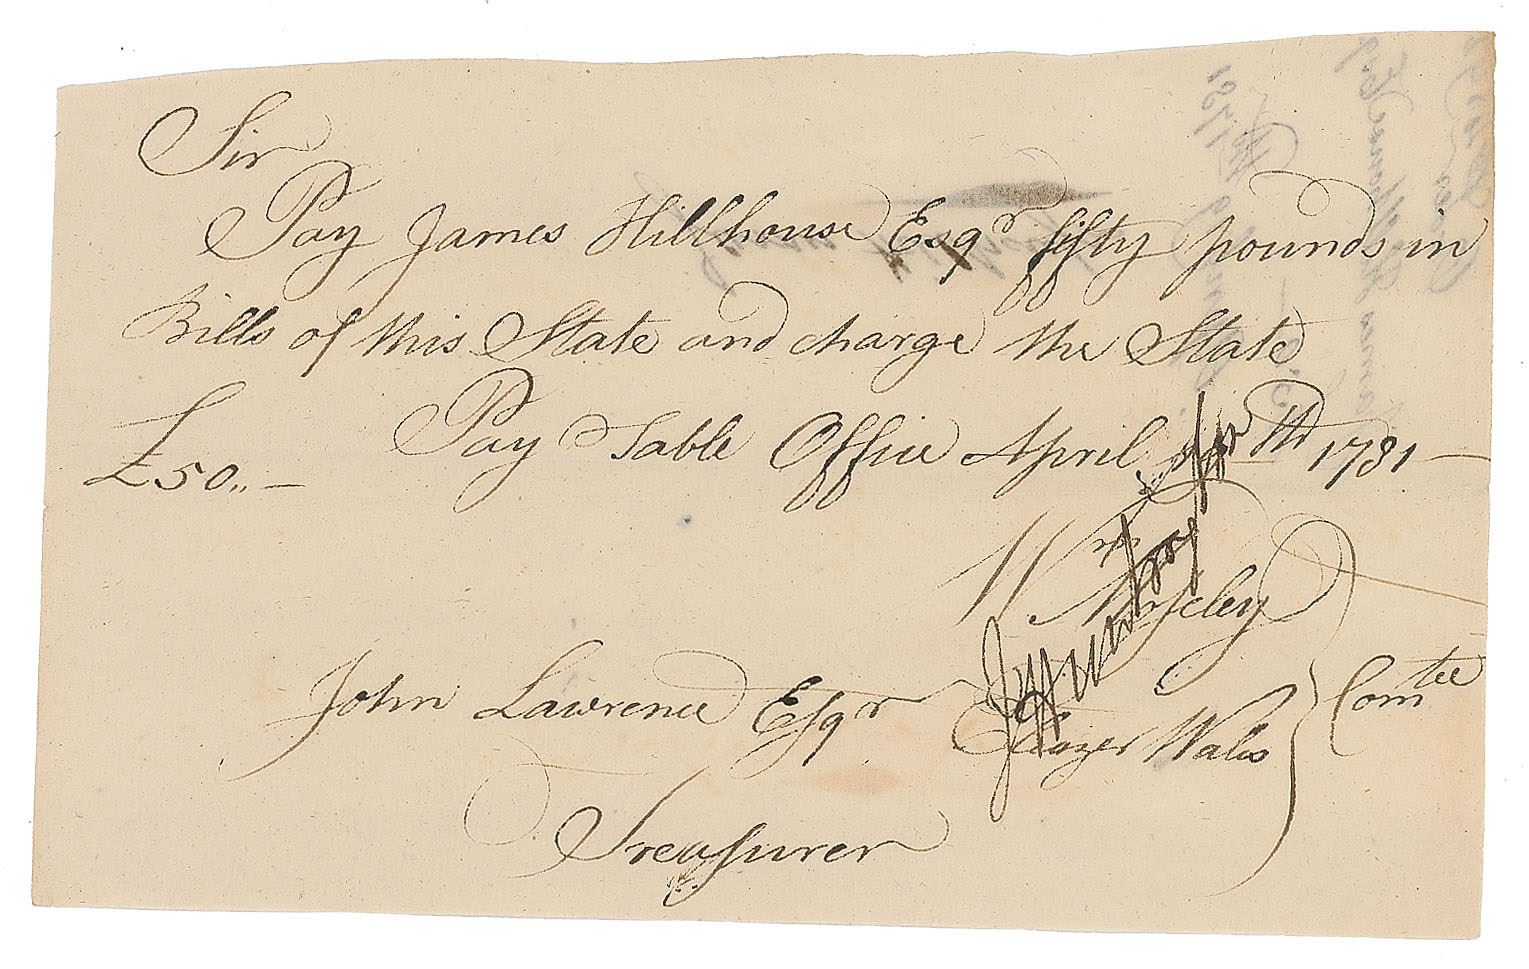 Sir
Pay James Hillhouse Esqr fifty pounds in
Bills of this State and charge the State
£50,,— Pay Table Office April 1781—
Wm Moseley
John Lawrence Esqr Eleazer Wales } Comtee
Treasurer